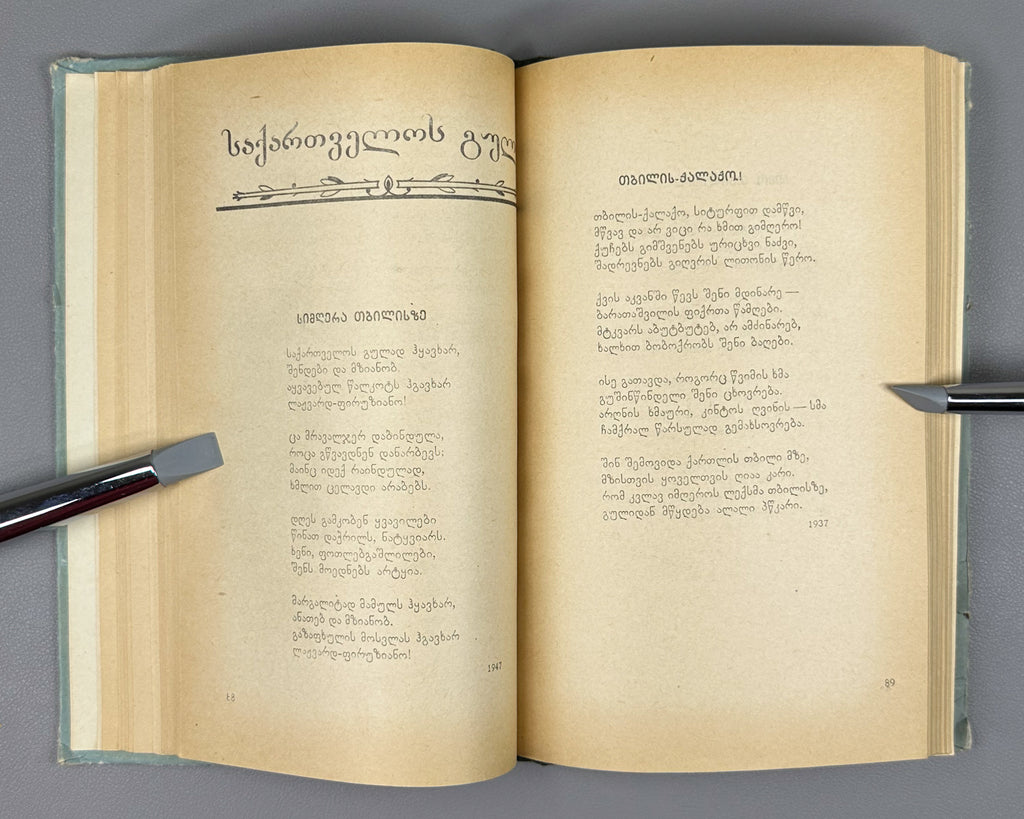 საქართველოს
სიმღერა თბილისზე
საქართველოს გულად ჰყავხარ,
შენდები და მზიანობ.
აყვავებულ წალკოტს ჰგავხარ
ლაჟვარდ-ფირუზიანო!
ცა მრავალჯერ დაბინდულა,
როცა გწვავდნენ დანარბევს;
მაინც იდექ რაინდულად,
ხმლით ცელავდი არაბებს.
დღეს გამკობენ ყვავილები
წინათ დაჭრილს, ნატყვიარს.
ხენი, ფოთლებგაშლილები,
შენს მოედნებს არტყია.
მარგალიტად მამულს ჰყავხარ,
ანათებ და მზიანობ.
გაზაფხულის მოსვლას ჰგავხარ
ლაჟვარდ-ფირუზიანო!
1947
თბილის-ქალაქო!
თბილის-ქალაქო, სიტურფით დამწვი,
მწვავ და არ ვიცი რა ხმით გიმღერო!
ქუჩებს გიმშვენებს ურიცხვი ნაძვი,
შადრევნებს გიღვრის ლითონის წერო.
ქვის აკვანში წევს შენი მდინარე —
ბარათაშვილის ფიქრთა წამღები.
მტკვარს აბუტბუტებ, არ აძინარებ,
ხალხით ბობოქრობს შენი ბაღები.
ისე გათავდა, როგორც წვიმის ხმა
გუშინწინდელი შენი ცხოვრება.
არღნის ხმაური, კინტოს ღვინის — სმა
ჩამქრალ წარსულად გემახსოვრება.
შინ შემოვიდა ქართლის თბილი მზე,
მზისთვის ყოველთვის ღიაა კარი.
რომ კვლავ იმღეროს ლექსმა თბილისზე,
გულიდან მწყდება ალალი პწკარი.
1937
89